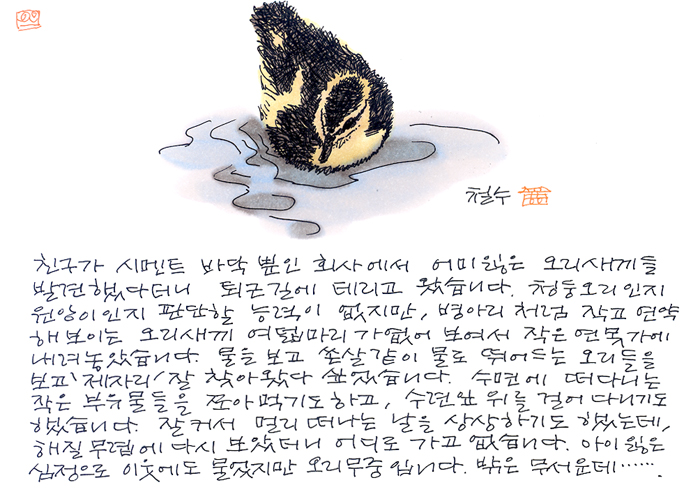 철수
친구가 시멘트 바닥 뿐인 회사에서 어미잃은 오리새끼들
발견했다더니 퇴근길에 데리고 왔습니다. 청둥오리인지
원앙이인지 판단할 능력이 없지만, 병아리처럼 작고 연약
해보이는 오리새끼 여덟마리 가엾어 보여서 작은 연못가에
내려놓았습니다. 물을 보고 쏜살같이 물로 뛰어드는 오리들을
보고 '제자리' 잘 찾아왔다 싶었습니다. 수면에 떠다니는
작은 부유물들을 쪼아먹기도 하고, 수련잎 위를 걸어 다니기도
했습니다. 잘 커서 멀리 떠나는 날을 상상하기도 했는데,
해질 무렵에 다시 보았더니 어디로 가고 없습니다. 아이 잃은
심정으로 이웃에도 물었지만 오리무중 입니다. 밖은 무서운데…….